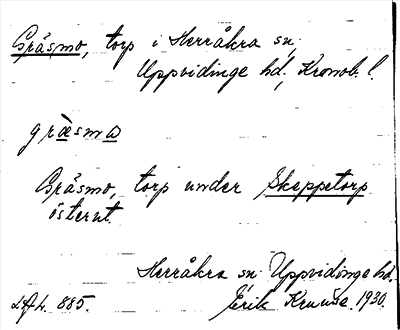 Gräsmo, torp i Herråkra sn,
Uppvidinge hd, Kronob. l.
græsmo
Gräsmo, torp under Skeppetorp
österut.
Herråkra sn. Uppvidinge hd.
Erik 1930.
L.A.L. 885.